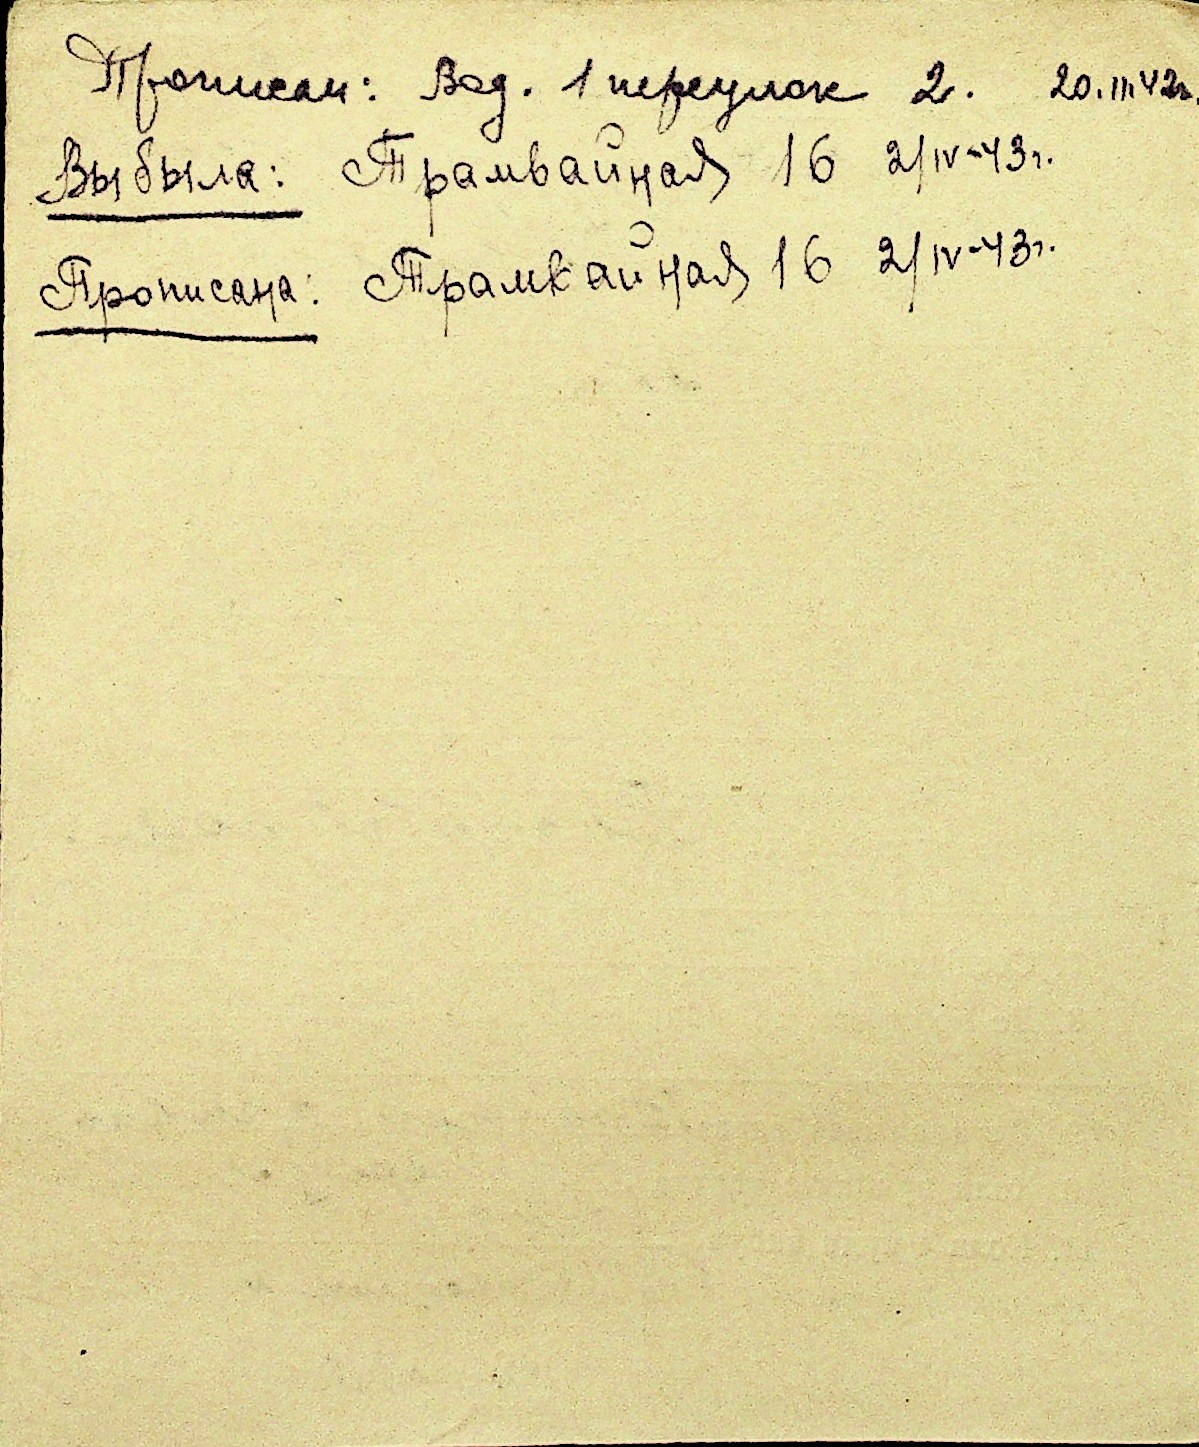 Прописан: Вод. 1 переулок 2. 20.III.42г.
Выбыла: Трамвайная 16 2/IV-43г.
Прописана: Трамвайная 16 2/IV-43г.